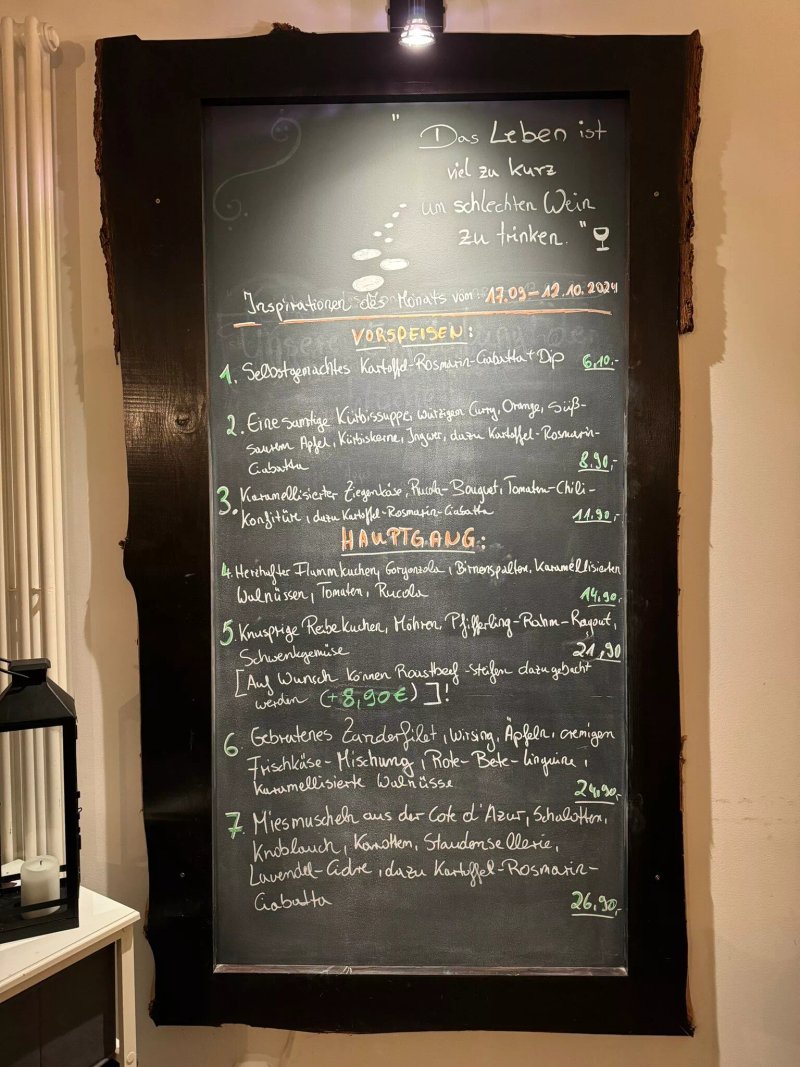 " Das Leben ist
viel zu kurz
um schlechten Wein
zu trinken. "
Inspirationen des Monats vom 17.09 – 12.10.2024
VORSPEISEN:
1. Selbstgemachtes Kartoffel-Rosmarin-Ciabatta + Dip 6,10.-
2. Eine samtige Kürbissuppe, würzigem Curry, Orange, süß-
saurem Apfel, Kürbiskerne, Ingwer, dazu Kartoffel-Rosmarin-
Ciabatta 8,90,-
3. Karamellisierter Ziegenkäse, Rucola-Bouquet, Tomaten-Chili-
Konfitüre, dazu Kartoffel-Rosmarin-Ciabatta 11,90,-
HAUPTGANG:
4. Herzhafter Flammkuchen, Gorgonzola, Birnenspalten, Karamellisierten
Walnüssen, Tomaten, Rucola 14,90,-
5. Knusprige Reibekuchen, Möhren, Pfifferling-Rahm-Ragout,
Schwenkgemüse 21,90
[Auf Wunsch können Roastbeef-Steifen dazu gebucht
werden (+8,90€)]!
6 Gebratenes Zanderfilet, Wirsing, Äpfeln, cremigen
Frischkäse-Mischung, Rote-Bete-Linguine,
Karamellisierte Walnüsse 24,90,-
7 Miesmuscheln aus der Cote d'Azur, Schalotten,
Knoblauch, Karotten, Staudensellerie,
Lavendel-Cidre, dazu Kartoffel-Rosmarin-
Ciabatta 26,90,-